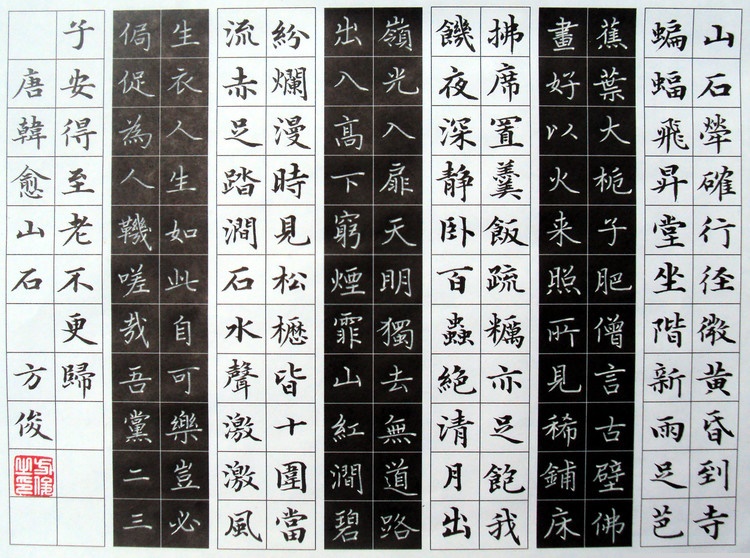 山石犖確行径微黄昏到寺
蝙蝠飛昇堂坐階新雨足芭
蕉葉大栀子肥僧言古壁佛
畫好以火来照所見稀鋪床
拂席置羹飯疏糲亦足飽我
饑夜深静卧百蟲絶清月出
嶺光入扉天明獨去無道路
出入高下窮煙霏山紅澗碧
紛爛漫時見松櫪皆十圍當
流赤足踏澗石水聲激激風
生衣人生如此自可樂豈必
侷促為人鞿嗟哉吾黨二三
子安得至老不更歸
唐韓愈山石 方俊
方俊之印